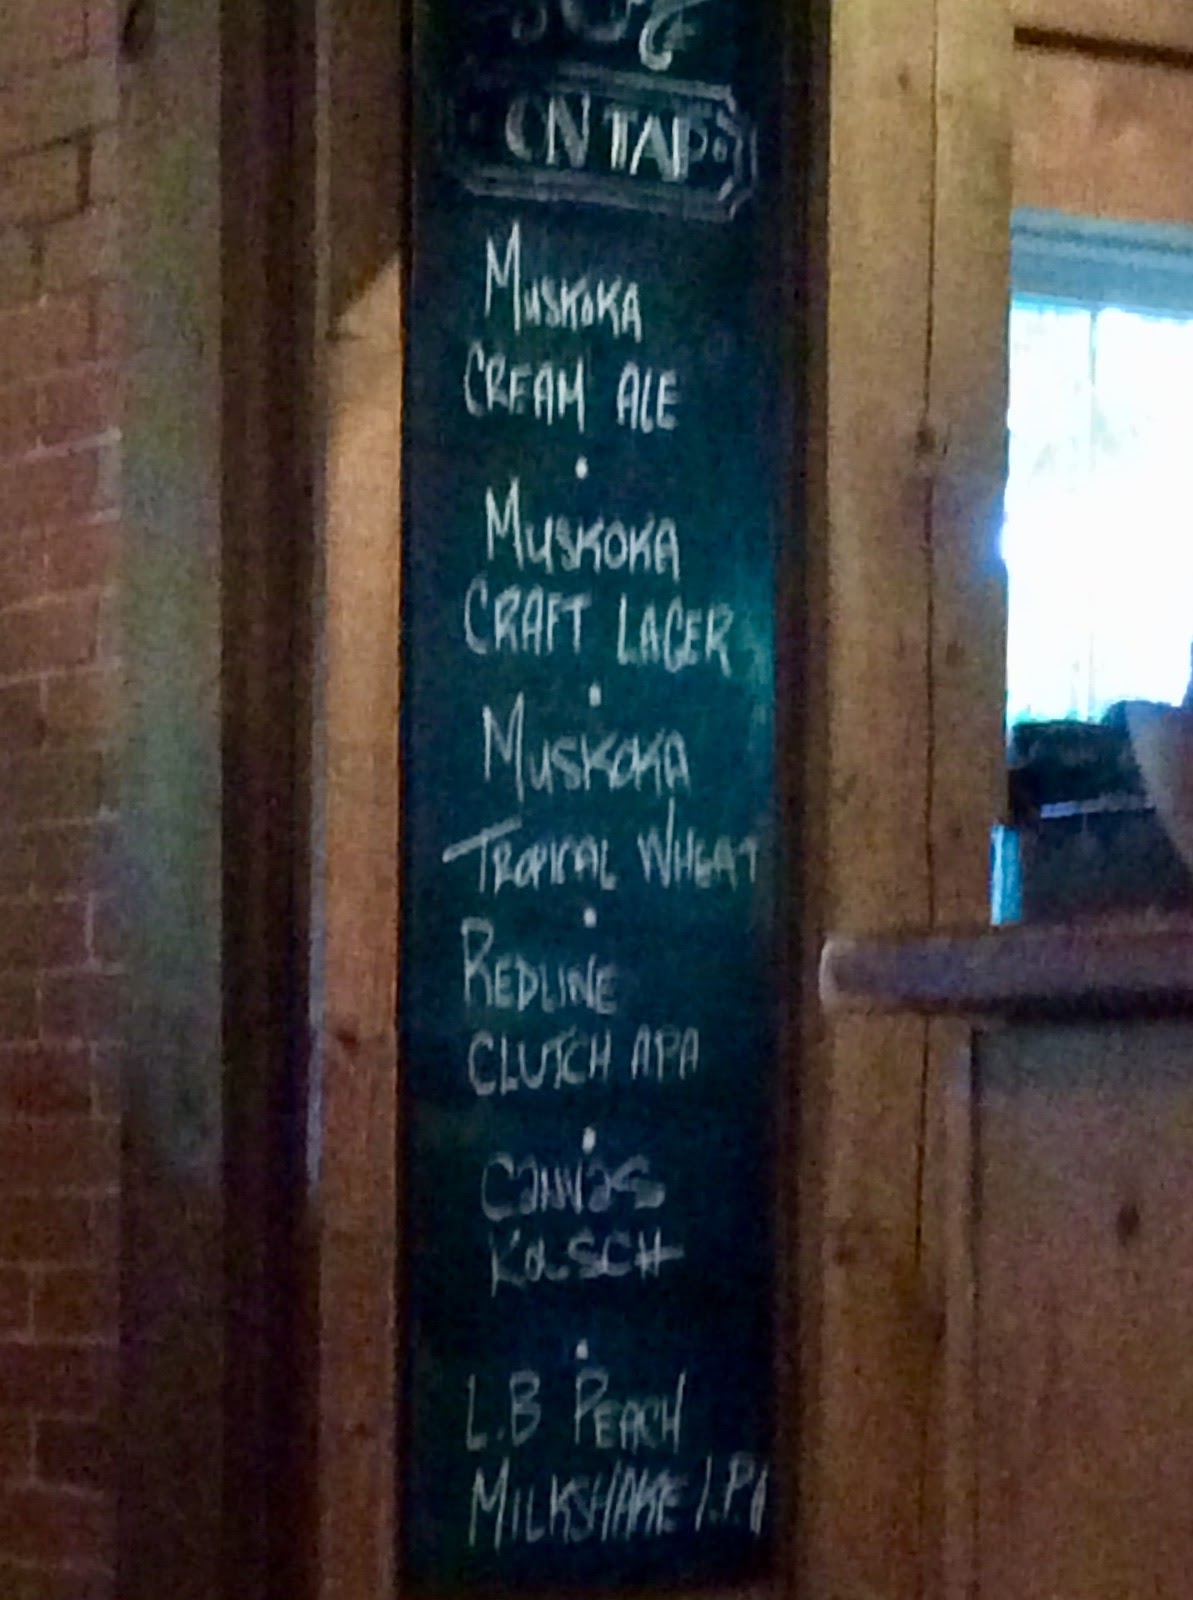 ON TAP:
MUSKOKA
CREAM ALE
MUSKOKA
CRAFT LAGER
MUSKOKA
TROPICAL WHEAT
REDLINE
CLUTCH APA
CANVAS
KOLSCH
L.B PEACH
MILKSHAKE I.PA